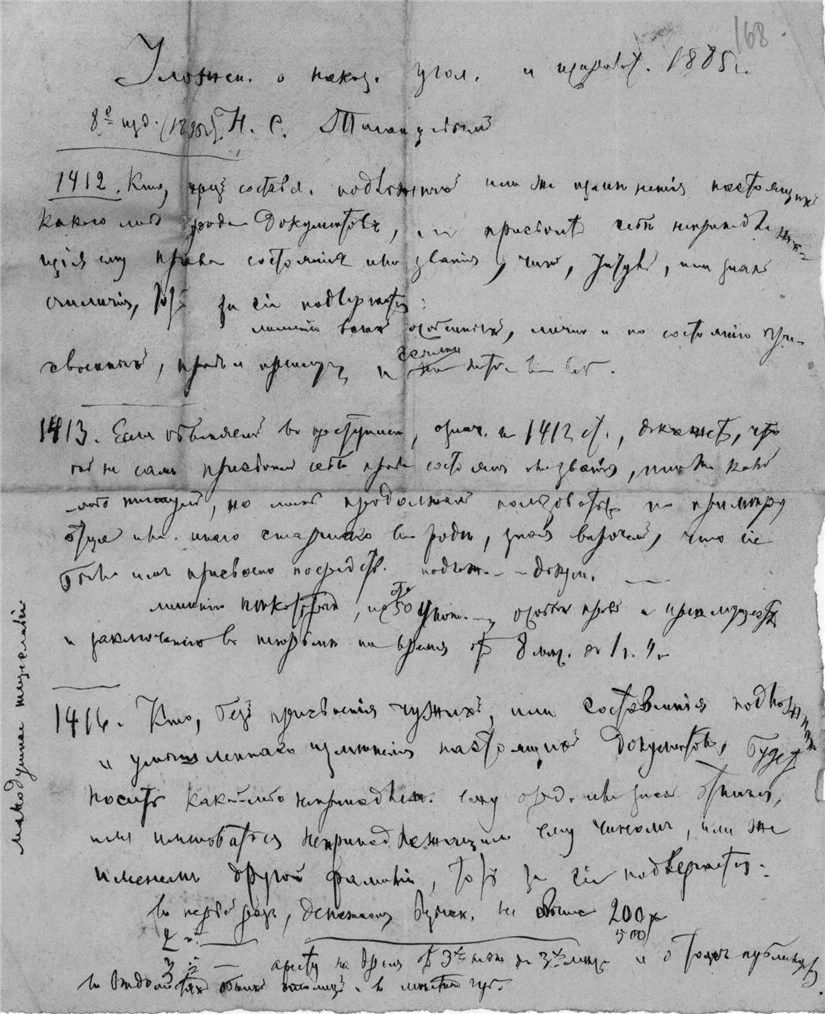 168
Уложен. о наказ. угол. и исправит. 1885 г.
8е изд. (1895г.) Н. С. Таганцевым
1412. Кто, чрез составл. подложных или же изменения настоящих
какого либо рода документов, присвоит себе непринадле-
щия ему права состояния или звания, чин, титул, или знак
отличия, тот за сие подвергается:
лишению всех особенных, лично и по состоянию при-
своенных, прав и преимущ. и ссылке
1413. Если обвиняемый в преступлении, означ. в 1412 ст., докажет, что
он не сам присвоил себе права состояния или звания, или же какой
либо титул, но лишь продолжал пользоваться по примеру
отца или иного старшаго в роде, зная впрочем, что сие
было им присвоено посредств. подлож. - - докум.
лишению некоторых, по 50 особых прав и преимуществ
и заключению в тюрьме на время от 8 мес. до 1 г. 4 м.
1416. Кто, без присвоения чужих, или составления подложных
и умышленнаго изменения настоящих документов, будет
носить какой либо непринадлеж. ему орд. или знак отличия,
или именоваться непринадлежащим ему чином, или же
именем другой фамилии, тот за сие подвергается:
в первый раз, денежному взыск. не свыше 200 р
500
2й
3й — аресту на время от 3х нед. до 3х мес. и о том публикуется
в ведомостях обеих столиц и в местных губ.
малодушное тщеславие